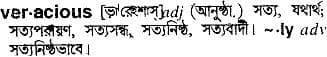 ver·acious [ভ্যারেইশাস্] adj (আনুষ্ঠা.) সত্য, যথার্থ;
সত্যপরায়ণ, সত্যসন্ধ, সত্যনিষ্ঠ, সত্যবাদী। ~·ly adv
সত্যনিষ্ঠভাবে।